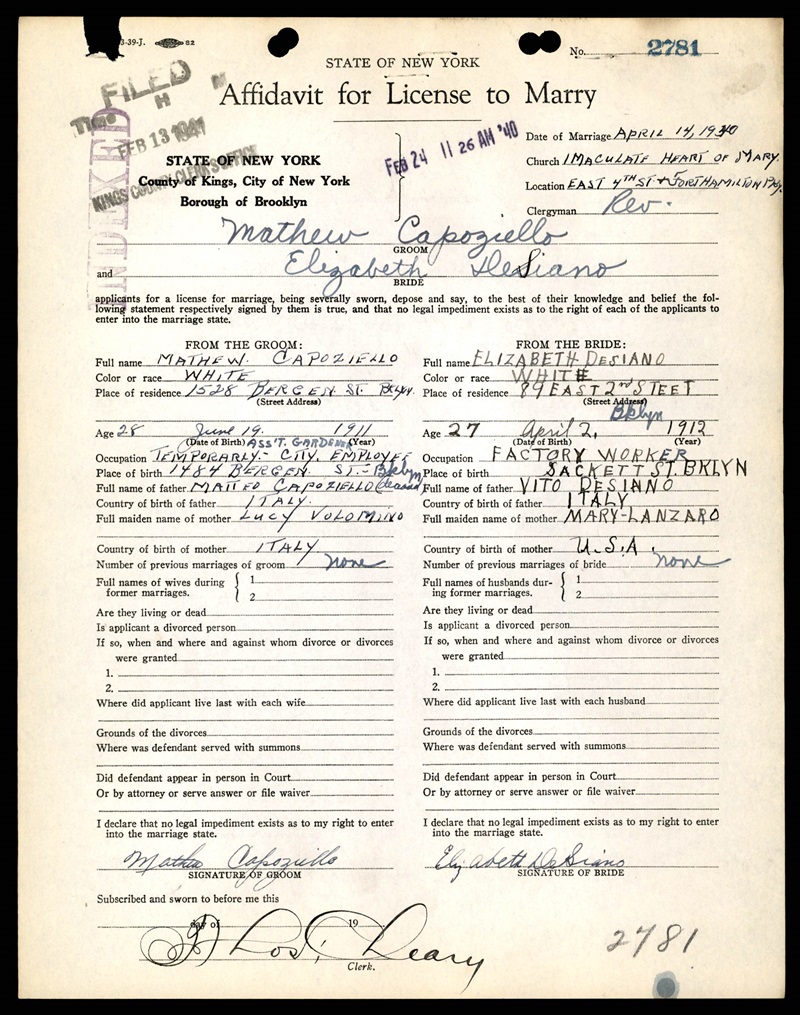 3-39-J. 82
No. 2781
STATE OF NEW YORK
Affidavit for License to Marry
FILED
H M
FEB 13 1941
KINGS COUNTY CLERK'S OFFICE
INDEXED
FEB 24 11 26 AM '40
STATE OF NEW YORK
County of Kings, City of New York
Borough of Brooklyn
Date of Marriage APRIL 14, 1940
Church IMACULATE HEART OF MARY.
Location EAST 4TH ST + FORTHAMILTON PKy.
Clergyman Rev.
Mathew Capoziello
GROOM
and Elizabeth DeSiano
BRIDE
applicants for a license for marriage, being severally sworn, depose and say, to the best of their knowledge and belief the fol-
lowing statement respectively signed by them is true, and that no legal impediment exists as to the right of each of the applicants to
enter into the marriage state.
FROM THE GROOM:
Full name MATHEW. CAPOZIELLO
Color or race WHITE
Place of residence 1528 BERGEN ST. BKLYN.
(Street Address)
Age 28 June 19. 1911
(Date of Birth) ASS'T. GARDENER (Year)
Occupation TEMPORARLY- CITY EMPLOYEE
Place of birth 1484 BERGEN. ST.- Bklyn
Full name of father MATTEO CAPOZIELLO
Country of birth of father ITALY.
Full maiden name of mother LUCY VOLOMINO
Country of birth of mother ITALY
Number of previous marriages of groom none
Full names of wives during
former marriages. { 1
2
Are they living or dead
Is applicant a divorced person
If so, when and where and against whom divorce or divorces
were granted
1.
2.
Where did applicant live last with each wife
Grounds of the divorces
Where was defendant served with summons
Did defendant appear in person in Court
Or by attorney or serve answer or file waiver
I declare that no legal impediment exists as to my right to enter
into the marriage state.
Mathew Capoziello
SIGNATURE OF GROOM
FROM THE BRIDE:
Full name ELIZABETH DESIANO
Color or race WHITE
Place of residence 89 EAST 2nd STEET
(Street Address)
Bklyn
Age 27 April 2, 1912
(Date of Birth) (Year)
Occupation FACTORY WORKER
Place of birth SACKETT ST. BKLYN
Full name of father VITO DESIANO
Country of birth of father ITALY
Full maiden name of mother MARY-LANZARO
Country of birth of mother U.S.A.
Number of previous marriages of bride none
Full names of husbands dur-
ing former marriages. { 1
2
Are they living or dead
Is applicant a divorced person
If so, when and where and against whom divorce or divorces
were granted
1.
2.
Where did applicant live last with each husband
Grounds of the divorces
Where was defendant served with summons
Did defendant appear in person in Court
Or by attorney or serve answer or file waiver
I declare that no legal impediment exists as to my right to enter
into the marriage state.
Elizabeth DeSiano
SIGNATURE OF BRIDE
Subscribed and sworn to before me this
day of 19
Clerk.
2781